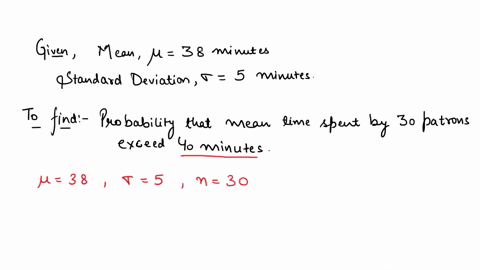 Given, Mean, μ = 38 minutes
Standard Deviation, σ = 5 minutes.
To find:- Probability that mean time spent by 30 patrons
exceed 40 minutes.
μ = 38 , σ = 5 , n = 30